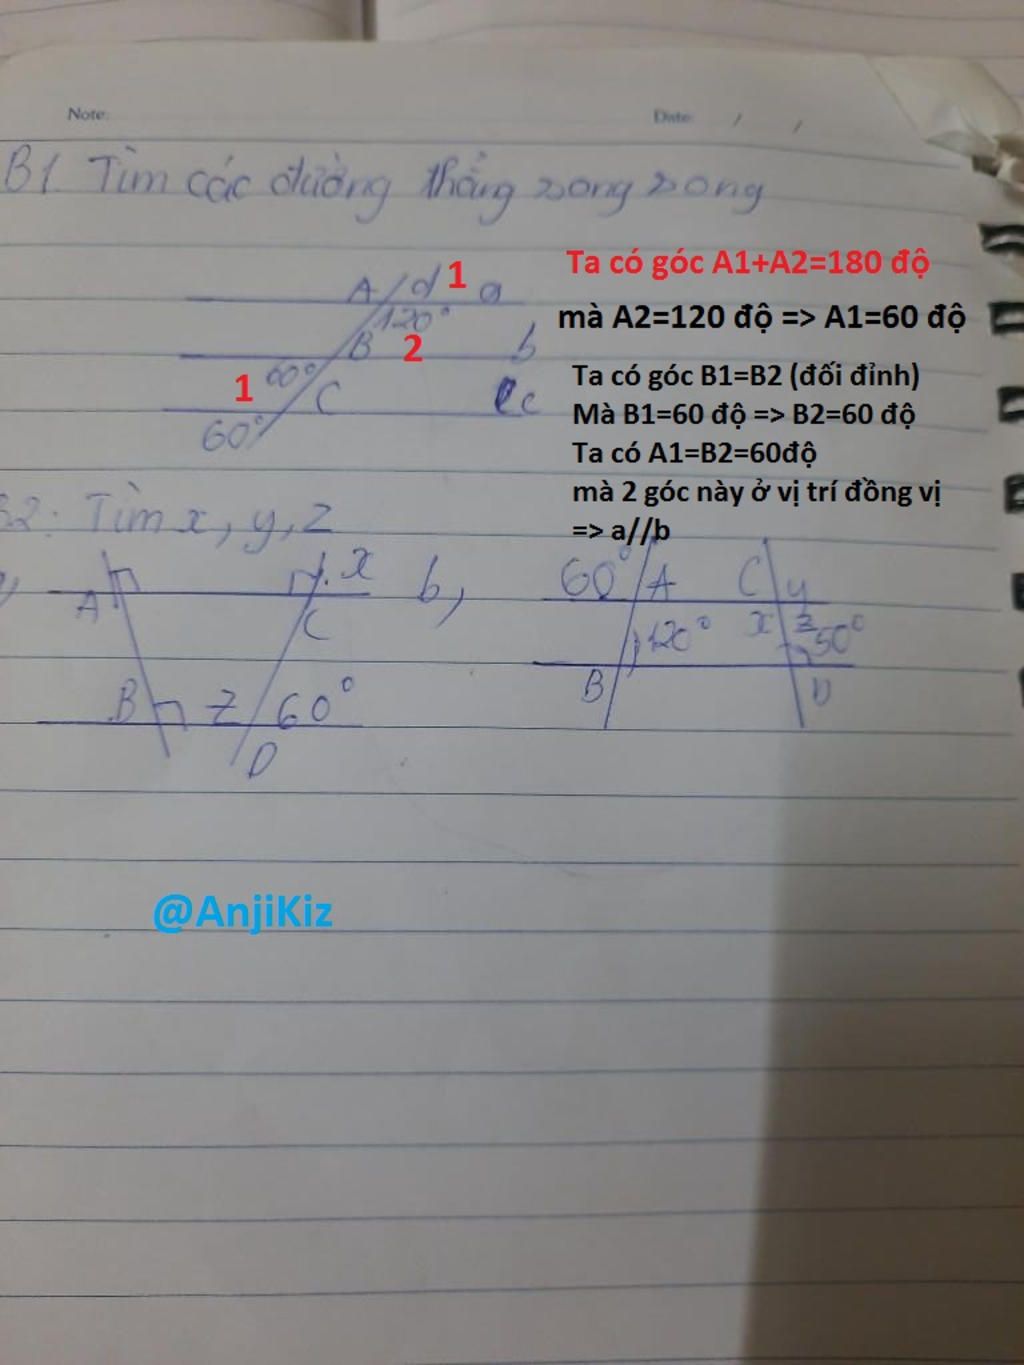 Note:
Date: / /
B1. Tìm các đường thẳng song song
A d 1 a
120°
B 2 b
1 60° C c
60°
Ta có góc A1+A2=180 độ
mà A2=120 độ => A1=60 độ
Ta có góc B1=B2 (đối đỉnh)
Mà B1=60 độ => B2=60 độ
Ta có A1=B2=60độ
mà 2 góc này ở vị trí đồng vị
=> a//b
B2: Tìm x, y, z
A x C
B z 60°
D
b,
60° A C y
120° x z 50°
B D
@AnjiKiz